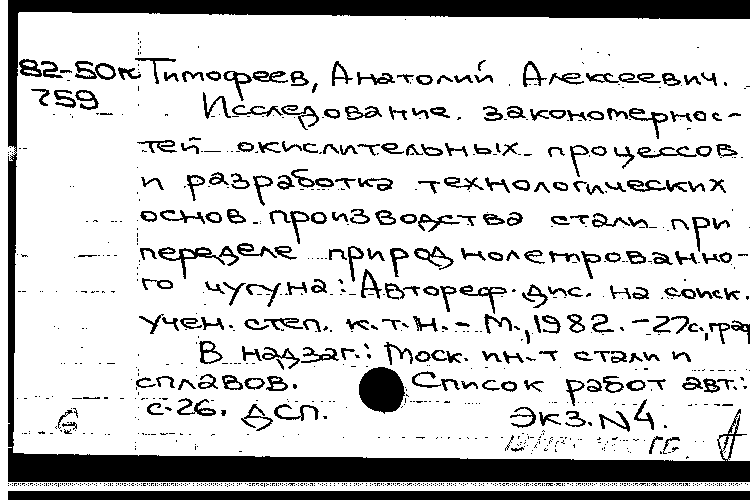 82-50к Тимофеев, Анатолий Алексеевич.
759 Исследование закономернос-
тей окислительных процессов
и разработка технологических
основ производства стали при
переделе природнолегированно-
го чугуна: Автореф. дис. на соиск.
учен. степ. к.т.н. - М., 1982. - 27с, граф
В надзаг.: Моск. ин-т стали и
сплавов. Список работ авт.:
с. 26. ДСП. Экз. N4.